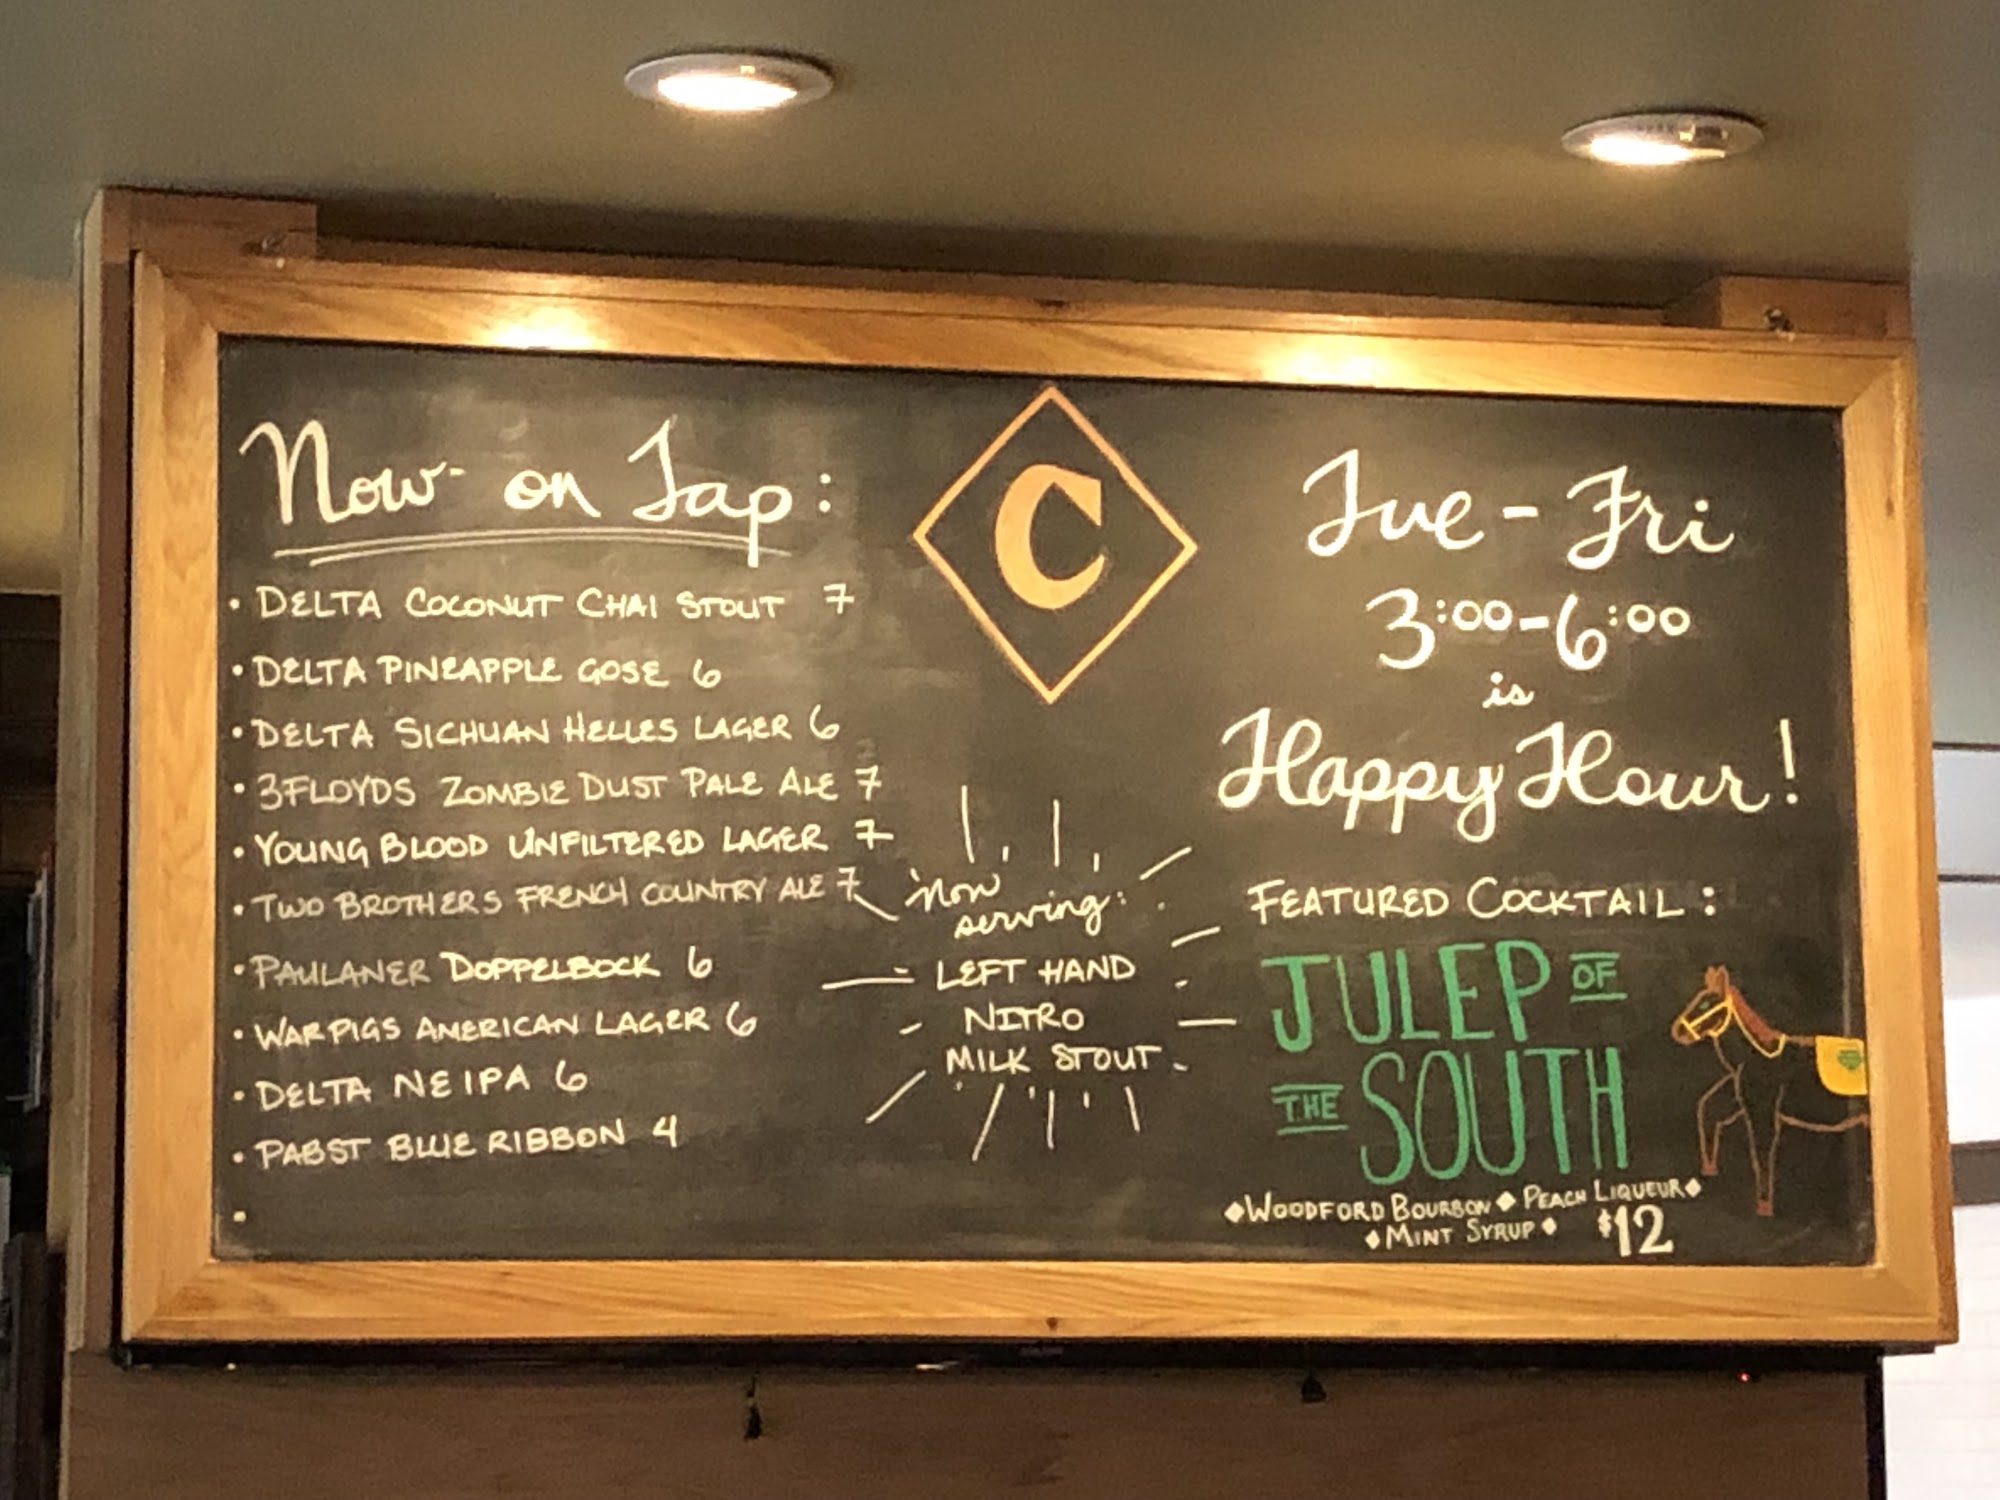 Now on Tap:
• DELTA COCONUT CHAI STOUT 7
• DELTA PINEAPPLE GOSE 6
• DELTA SICHUAN HELLES LAGER 6
• 3FLOYDS ZOMBIE DUST PALE ALE 7
• YOUNG BLOOD UNFILTERED LAGER 7
• TWO BROTHERS FRENCH COUNTRY ALE 7
• PAULANER DOPPELBOCK 6
• WARPIGS AMERICAN LAGER 6
• DELTA NEIPA 6
• PABST BLUE RIBBON 4
•
C
now
serving:
LEFT HAND
NITRO
MILK STOUT
Tue - Fri
3:00-6:00
is
Happy Hour!
FEATURED COCKTAIL:
JULEP OF
THE SOUTH
♦WOODFORD BOURBON♦PEACH LIQUEUR♦
♦MINT SYRUP♦ $12